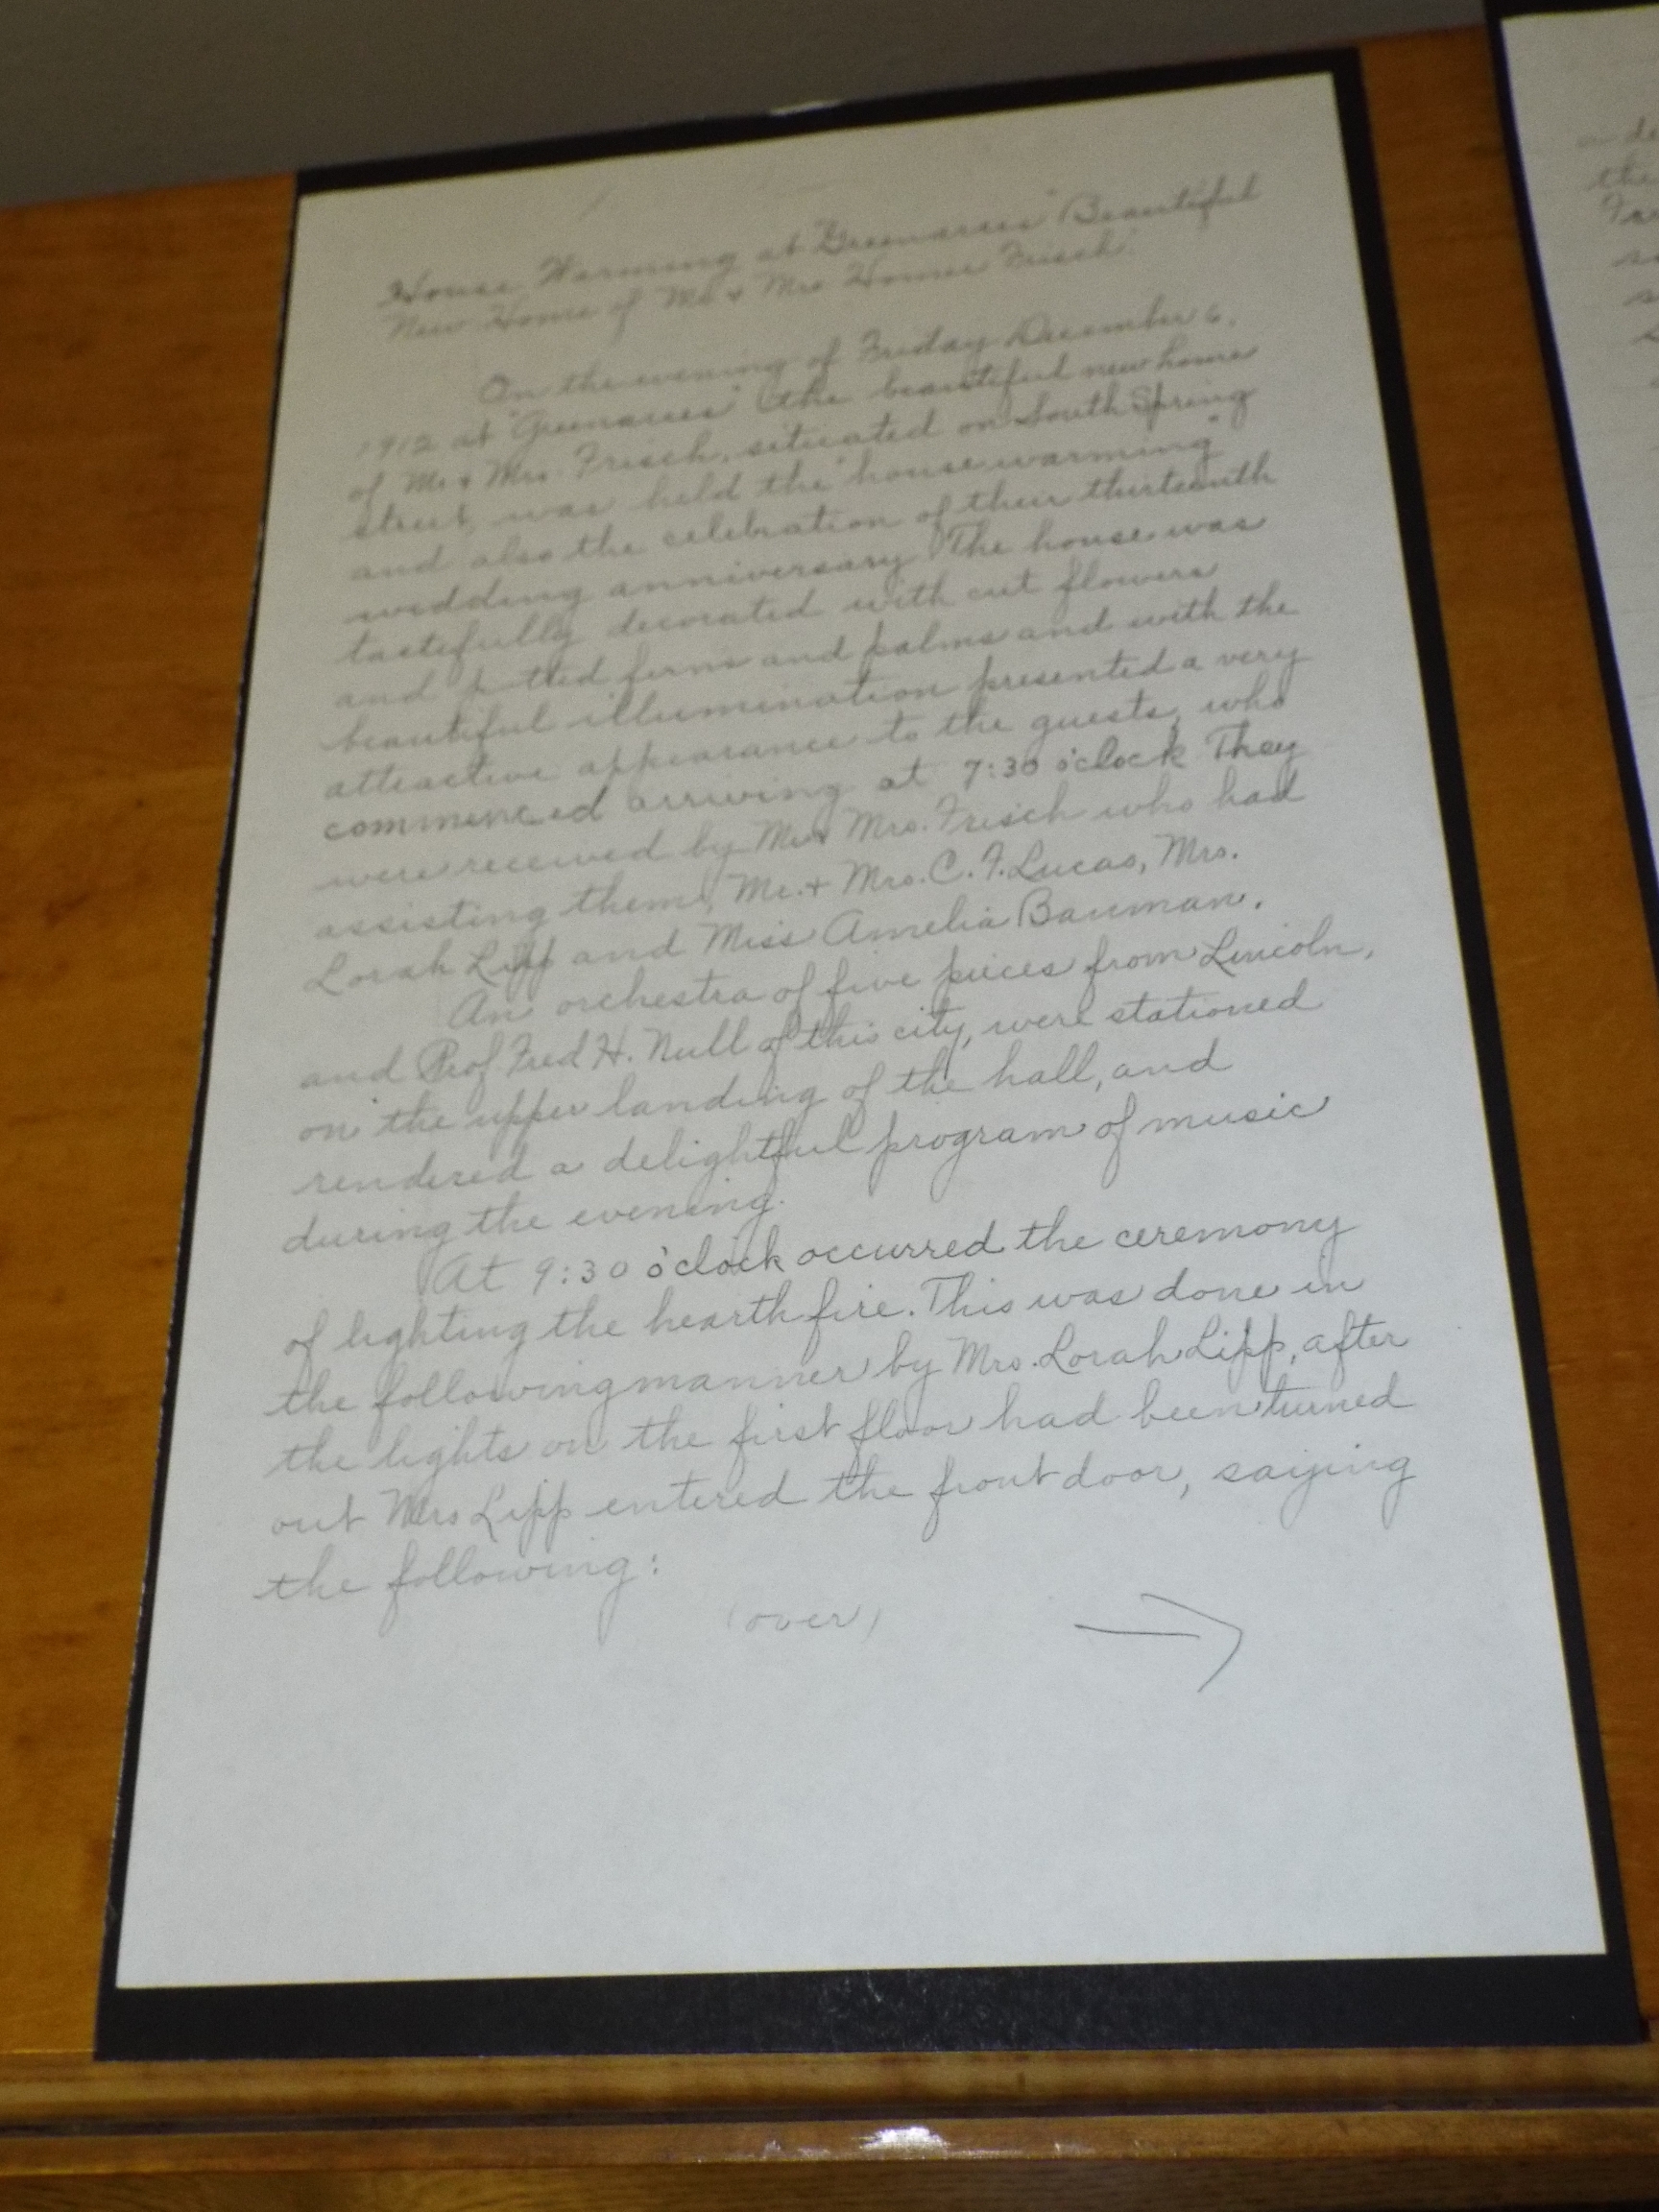 House Warming at "Greenacres" Beautiful
New Home of Mr & Mrs Homer Frisch.
On the evening of Friday December 6,
1912 at "Greenacres" the beautiful new home
of Mr & Mrs. Frisch, situated on South Spring
street, was held the "house warming"
and also the celebration of their thirteenth
wedding anniversary The house was
tastefully decorated with cut flowers
and potted ferns and palms and with the
beautiful illumination presented a very
attractive appearance to the guests, who
commenced arriving at 7:30 o'clock They
were received by Mr & Mrs. Frisch who had
assisting them, Mr. + Mrs. C. F. Lucas, Mrs.
Lorah Lipp and Miss Amelia Bauman.
An orchestra of five pieces from Lincoln,
and Prof Fred H. Null of this city, were stationed
on the upper landing of the hall, and
rendered a delightful program of music
during the evening.
At 9:30 o'clock occurred the ceremony
of lighting the hearth fire. This was done in
the following manner by Mrs. Lorah Lipp, after
the lights on the first floor had been turned
out Mrs Lipp entered the front door, saying
the following:
(over)
the